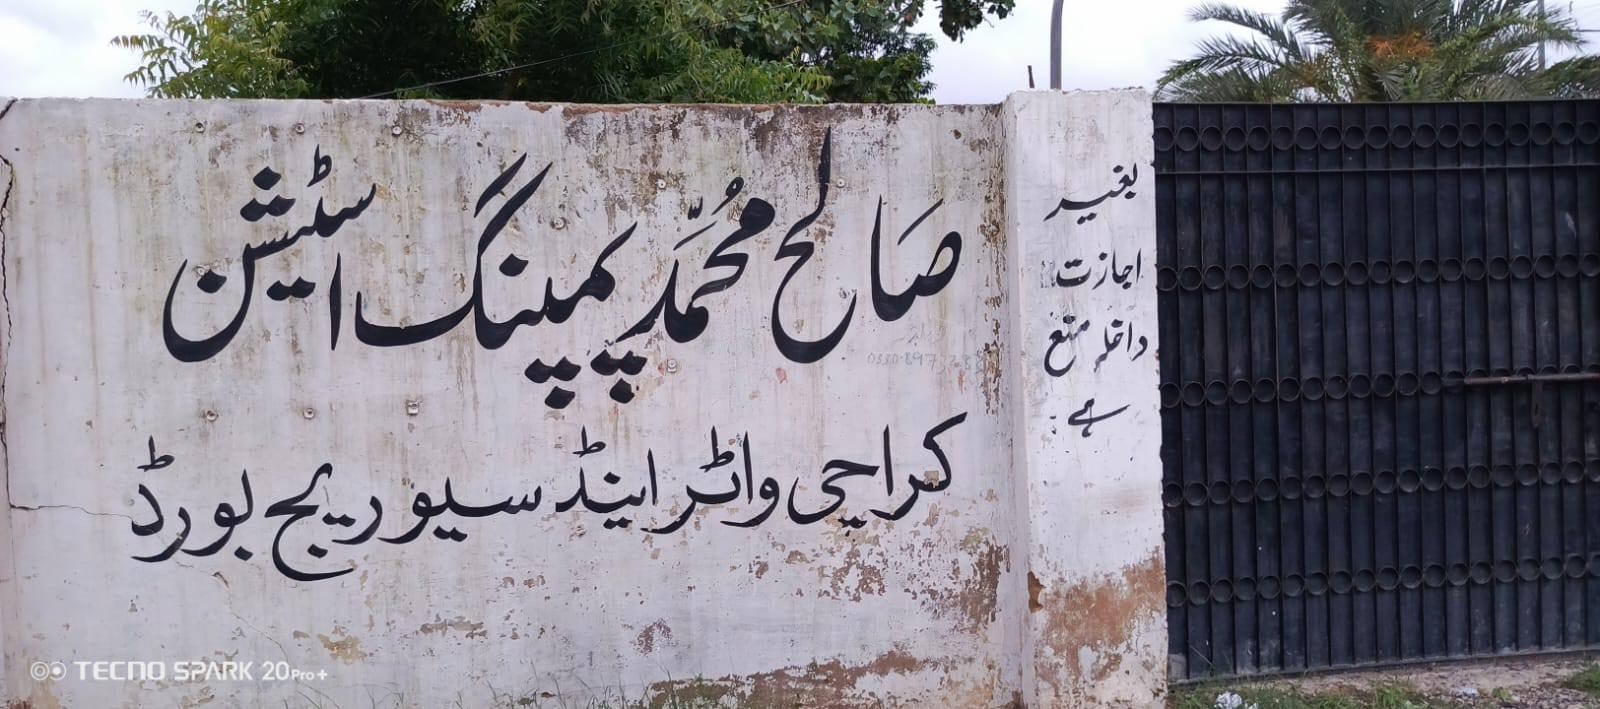 صالح محمد پمپنگ اسٹیشن
کراچی واٹر اینڈ سیوریج بورڈ
بغیر
اجازت
داخلہ منع
ہے
TECNO SPARK 20Pro+